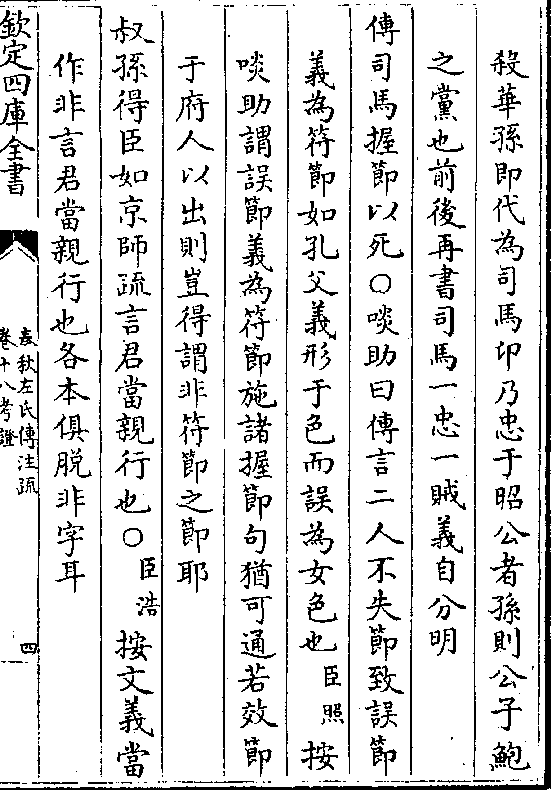 殺華孫即代為司馬卬乃忠于昭公者孫則公子鮑
之黨也前後再書司馬一忠一賊義自分明
傳司馬握節以死○啖助曰傳言二人不失節致誤節
義為符節如孔父義形于色而誤為女色也臣照按
啖助謂誤節義為符節施諸握節句猶可通若效節
于府人以出則豈得謂非符節之節耶
叔孫得臣如京師疏言君當親行也○臣浩按文義當
作非言君當親行也各本俱脱非字耳
欽定四庫全書
春秋左氏傳注疏
卷十八考證
四